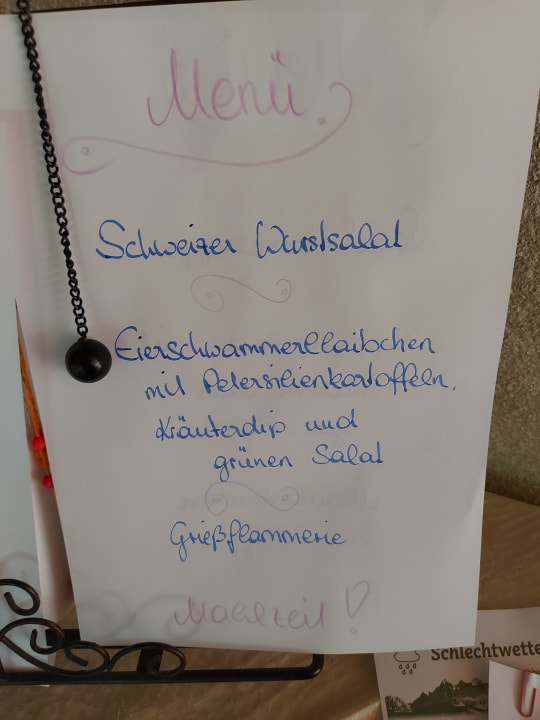 Menü
Schweizer Wurstsalat
Eierschwammerllaibchen
mit Petersilienkartoffeln,
Kräuterdip und
grünen Salat
Grießflammerie
Mahlzeit!
Schlechtwette